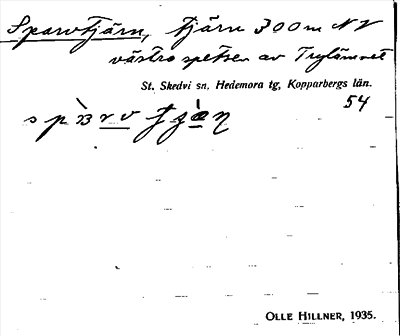 Sparvtjärn, tjärn 300 m NV
västra spetsen av Trylämnet
St. Skedvi sn, Hedemora tg, Kopparbergs län.
54
OLLE HILLNER, 1935.